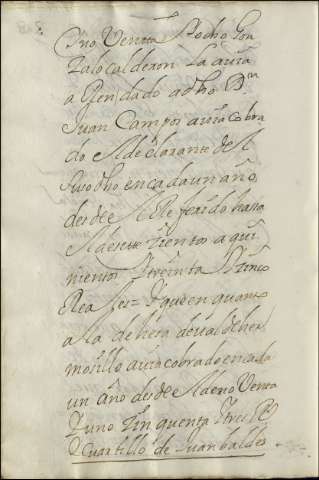 Cino Venta El dicho Gon
zalo calderon La auia
a Rendado a dho Dn
Juan Campos auia cobra
do El declarante del
Susodho en cada un año
desde El Referido hasta
El de sete zientos a qui
nientos Y treinta Y zinco
Rea les = Y que en quanto
a la dehesa de ual de her
mosillo auia cobrado en cada
un año desde El de no Venta
Y uno Zin quenta Y tres Rs
Y Cuartillo de Juan baldes